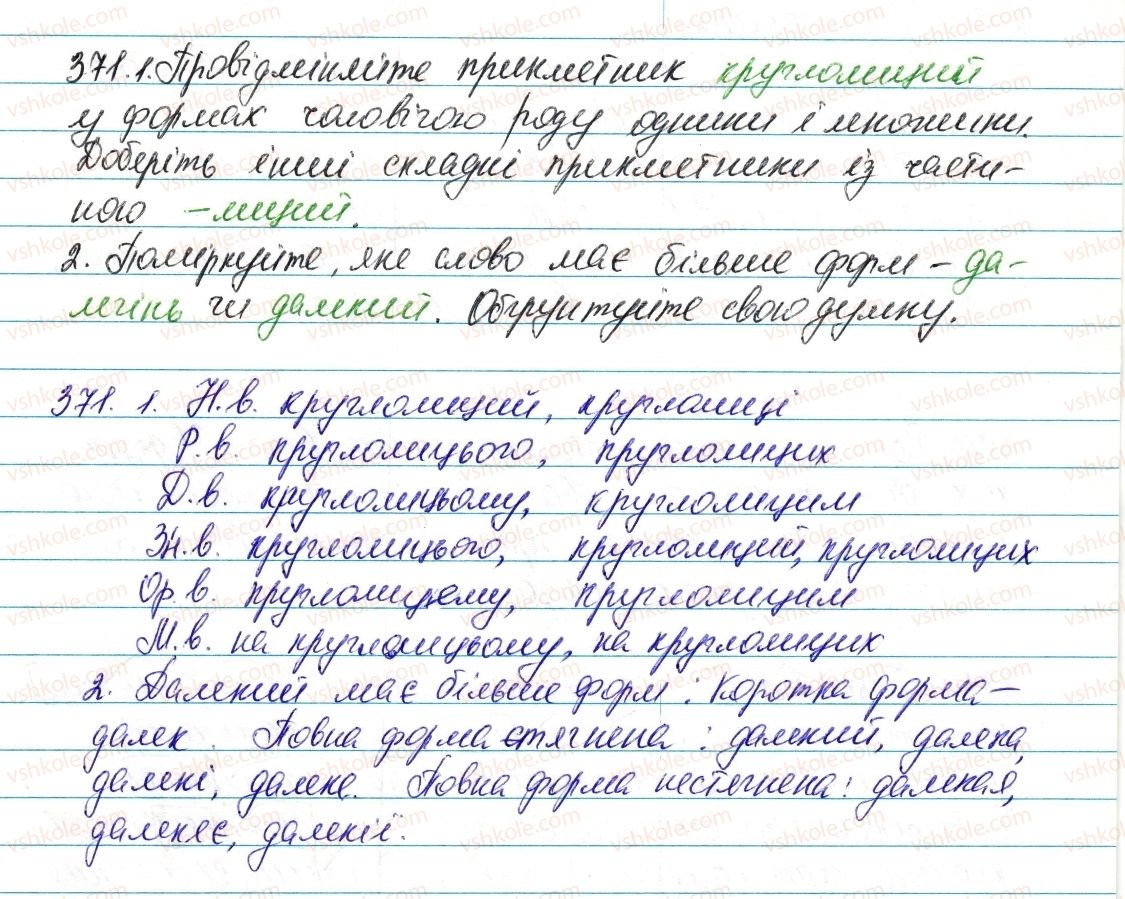 371.1. Провідмініть прикметник круглолиций
у формах чоловічого роду однини і множини.
Доберіть інші складні прикметники із части-
ною -лиций.
2. Поміркуйте, яке слово має більше форм – да-
лечінь чи далекий. Обґрунтуйте свою думку.
371. 1. Н.в. круглолиций, круглолиці
Р.в. круглолицього, круглолицих
Д.в. круглолицьому, круглолицим
Зн.в. круглолицього, круглолиций, круглолицих
Ор.в. круглолицьому, круглолицим
М.в. на круглолицьому, на круглолицих
2. Далекий має більше форм: Коротка форма –
далек. Повна форма стягнена: далекий, далека,
далекі, далеке. Повна форма нестягнена: далекая,
далекеє, далекії.